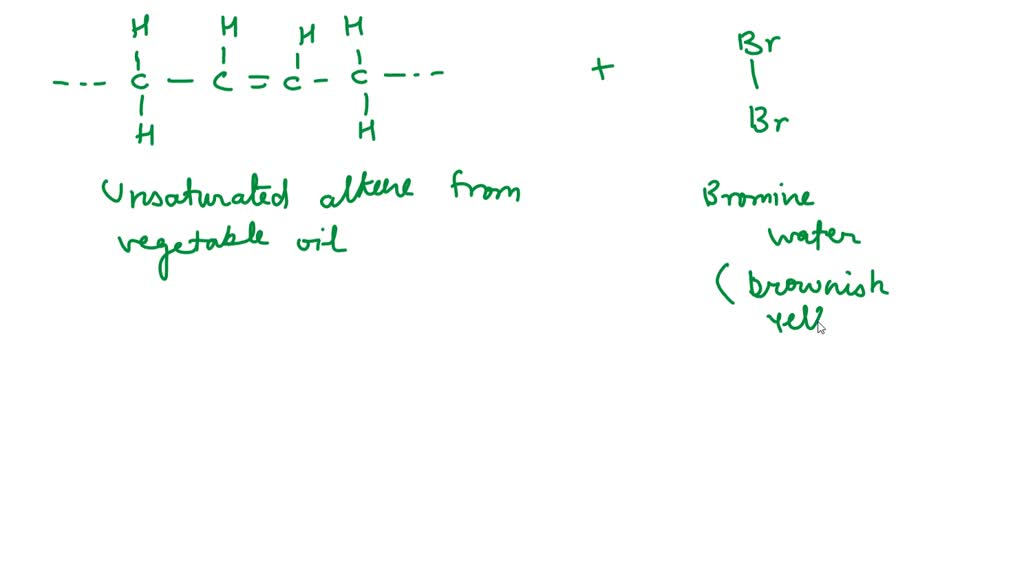 H H H H
--- C - C = C - C ---
H H
+
Br
|
Br
Unsaturated alkene from
vegetable oil
Bromine
water
( brownish
yell